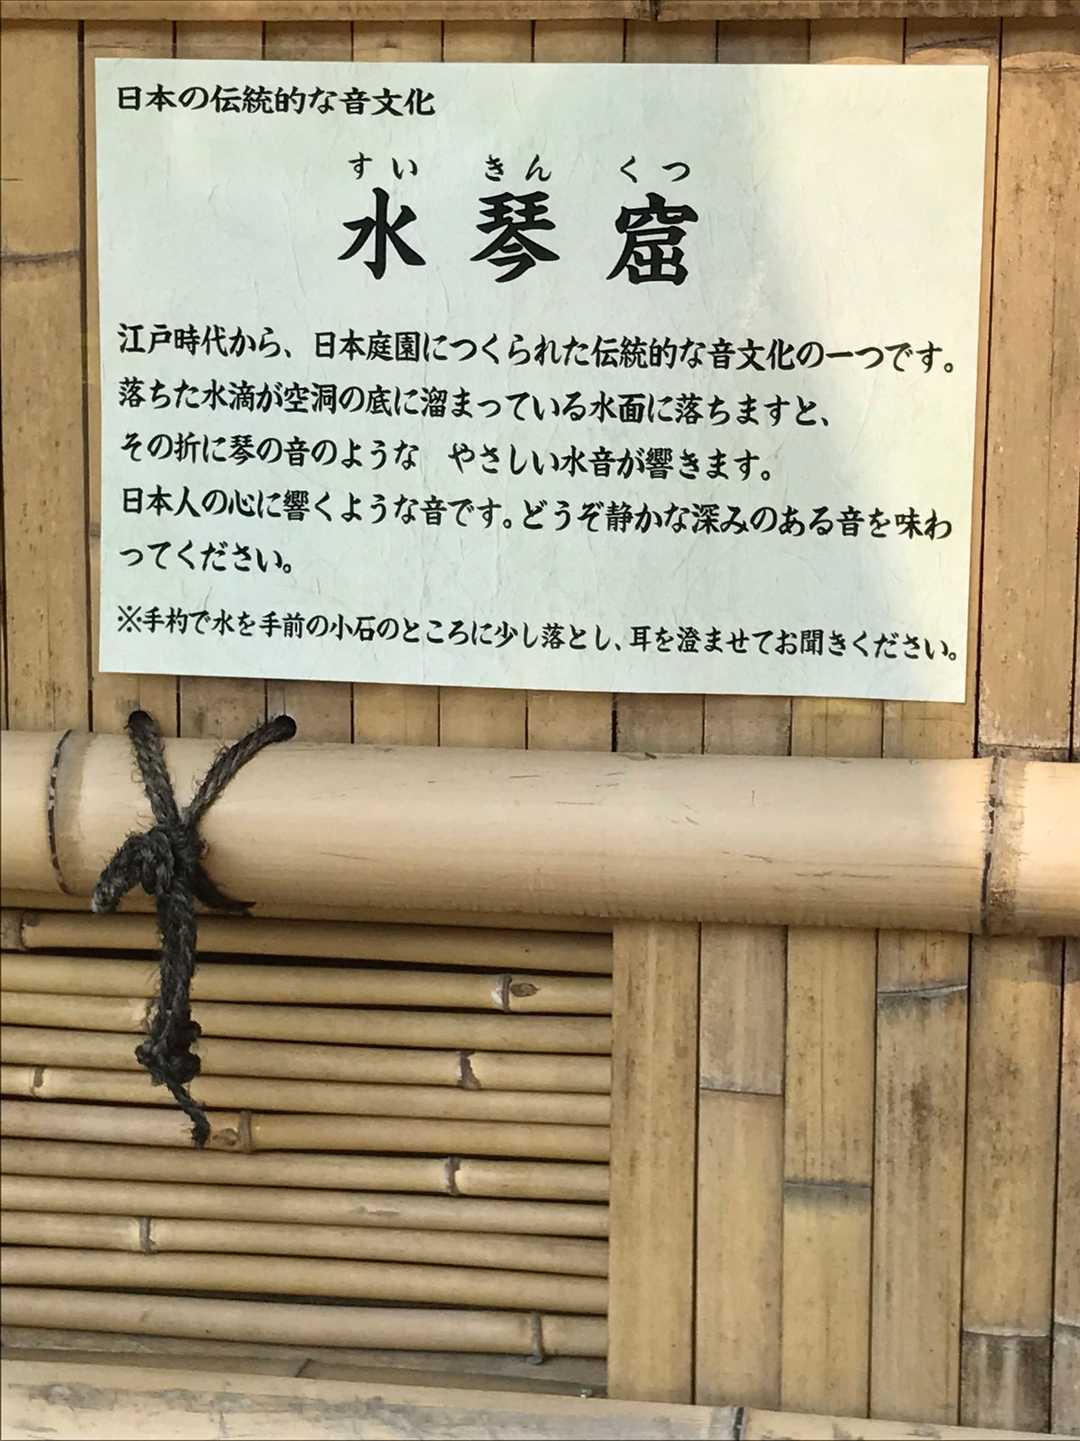 日本の伝統的な音文化
すい きん くつ
水琴窟
江戸時代から、日本庭園につくられた伝統的な音文化の一つです。
落ちた水滴が空洞の底に溜まっている水面に落ちますと、
その折に琴の音のような　やさしい水音が響きます。
日本人の心に響くような音です。どうぞ静かな深みのある音を味わ
ってください。
※手杓で水を手前の小石のところに少し落とし、耳を澄ませてお聞きください。